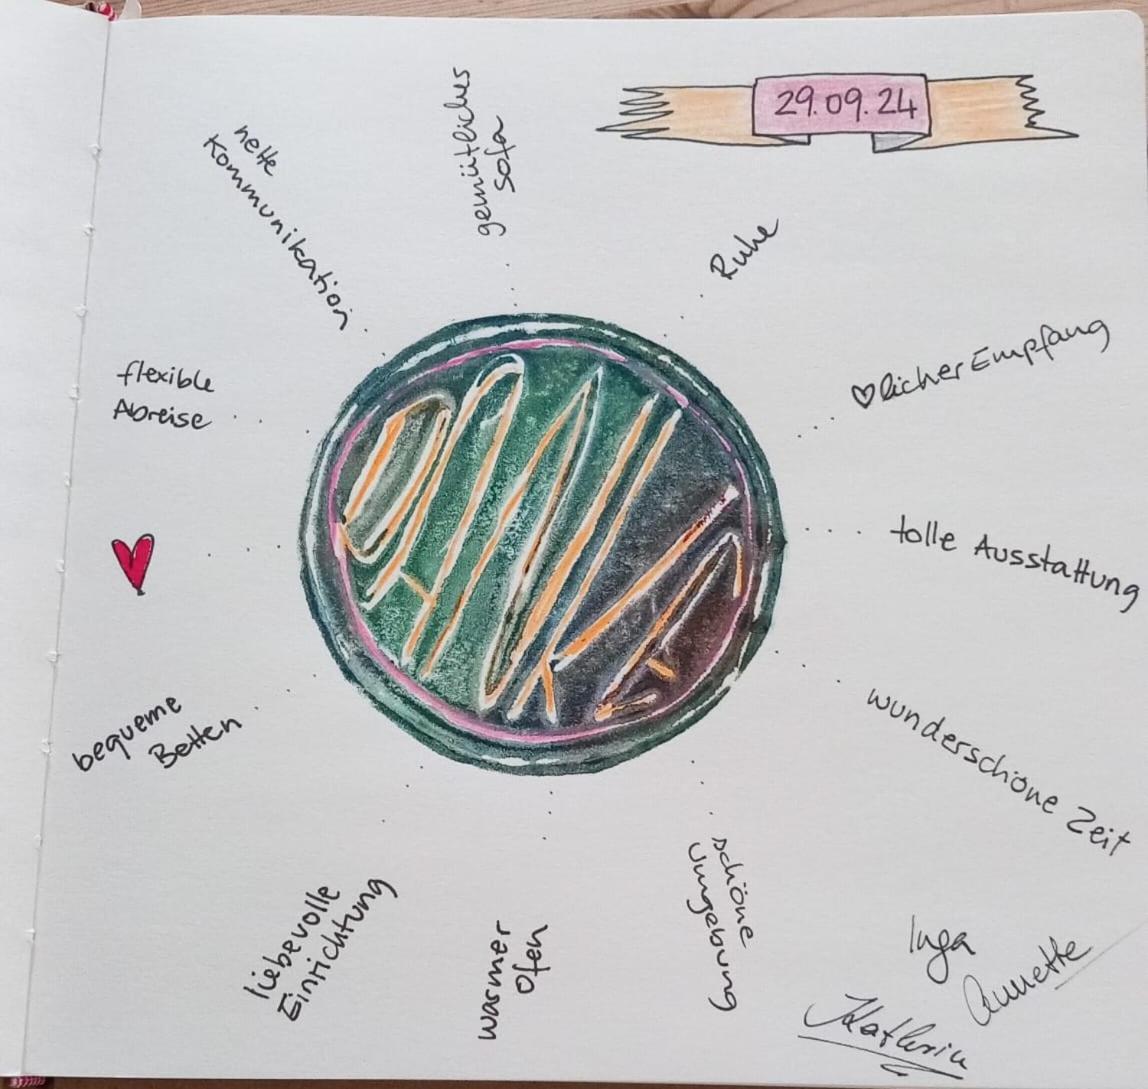 29.09.24
nette
Kommunikation
gemütliches
Sofa
Ruhe
♡licher Empfang
flexible
Abreise
DANKE
tolle Ausstattung
bequeme
Betten
wunderschöne Zeit
liebevolle
Einrichtung
warmer
Ofen
schöne
Umgebung
Inga
Annette
Kathrin